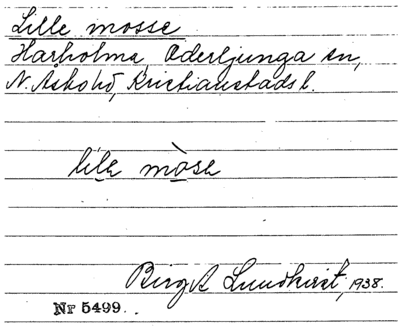 Lille mosse
Harholma, Oderljunga sn,
N. Åsbo hd, Kristianstads l.
lile mòse
Birgit Lundkvist, 1938.
Nr 5499.